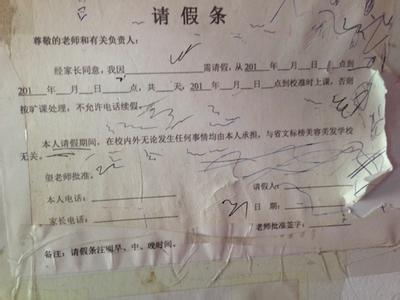 请假条
尊敬的老师和有关负责人：
经家长同意，我因__________需请假，从201__年__月__日__点到
201__年__月__日__点，共__天，201__年__月__日__点到校准时上课，否则
按旷课处理，不允许电话续假。
本人请假期间，在校内外无论发生任何事情均由本人承担，与省文标榜美容美发学校
无关。
望老师批准。
请假人：
本人电话：
日 期：
家长电话：
老师批准签字：
备注：请假条注明早、中、晚时间。